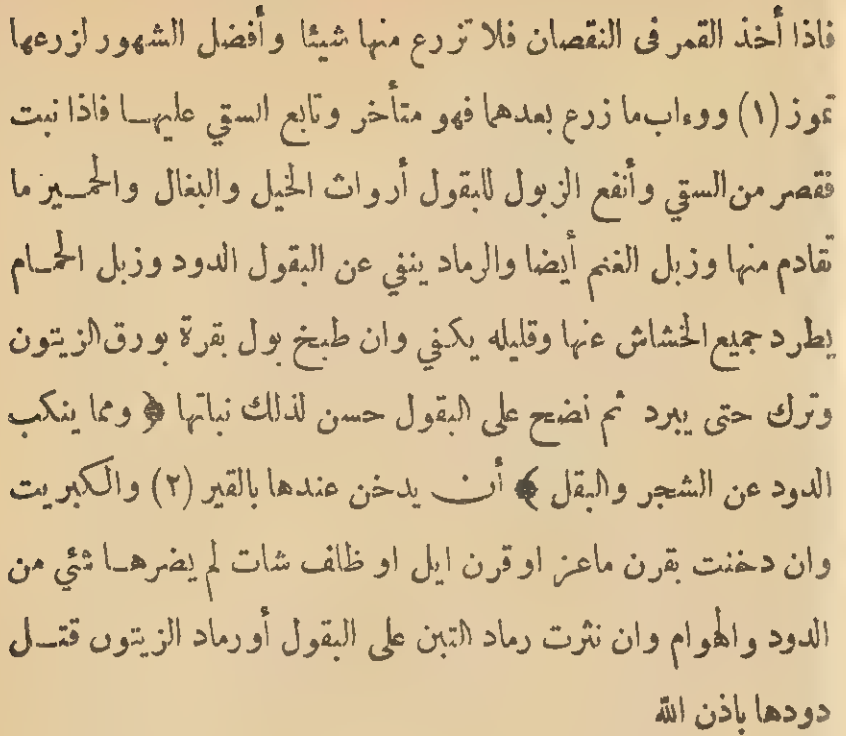 فاذا أخذ القمر فى النقصان فلا تزرع منها شيئا وأفضل الشهور لزرعها
تموز (١) وو٠اب ما زرع بعدهما فهو متأخر وتابع السقي عليهـا فاذا نبت
فقصر من السقي وأنفع الزبول للبقول أرواث الخيل والبغال والحمـير ما
تقادم منها وزبل الغنم أيضا والرماد ينفي عن البقول الدود وزبل الحمـام
يطرد جميع الخشاش عنها وقليله يكفي وان طبخ بول بقرة بورق الزيتون
وترك حتى يبرد ثم نضح على البقول حسن لذلك نباتها ﴿ ومما ينكب
الدود عن الشجر والبقل ﴾ أن يدخن عندها بالقير (٢) والكبريت
وان دخنت بقرن ماعز او قرن ايل او ظلف شات لم يضرهـا شئي من
الدود والهوام وان نثرت رماد التبن على البقول أو رماد الزيتون قتـل
دودها باذن الله